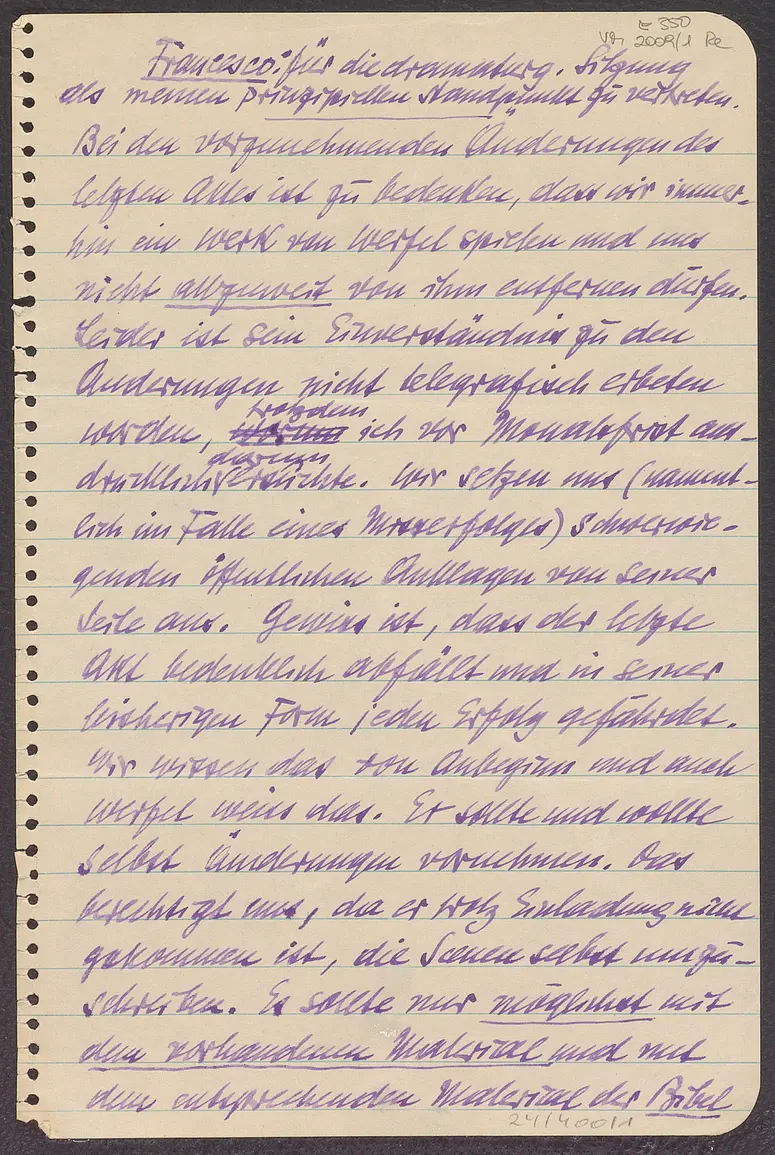 E 350
VA 2009/1 Re
Francesco: für die dramaturg. Sitzung
als meinen prinzipiellen Standpunkt zu vertreten.
Bei den vorzunehmenden Änderungen des
letzten Aktes ist zu bedenken, dass wir immer-
hin ein Werk von Werfel spielen und uns
nicht allzuweit von ihm entfernen dürfen.
Leider ist sein Einverständnis zu den
Änderungen nicht telegrafisch erbeten
trotzdem
worden, worum ich vor Monatsfrist aus-
darum
drücklich ersuchte. Wir setzen uns (nament-
lich im Falle eines Misserfolges) schwerwie-
genden öffentlichen Anklagen von seiner
Seite aus. Gewiss ist, dass der letzte
Akt bedenklich abfällt und in seiner
bisherigen Form jeden Erfolg gefährdet.
Wir wissen das von Anbeginn und auch
Werfel weiss das. Er sollte und wollte
selbst Änderungen vornehmen. Das
berechtigt uns, da er trotz Einladung nicht
gekommen ist, die Scenen selbst umzu-
schreiben. Es sollte nur möglichst mit
dem vorhandenen Material und mit
dem entsprechenden Material der Bibel
24/400/1